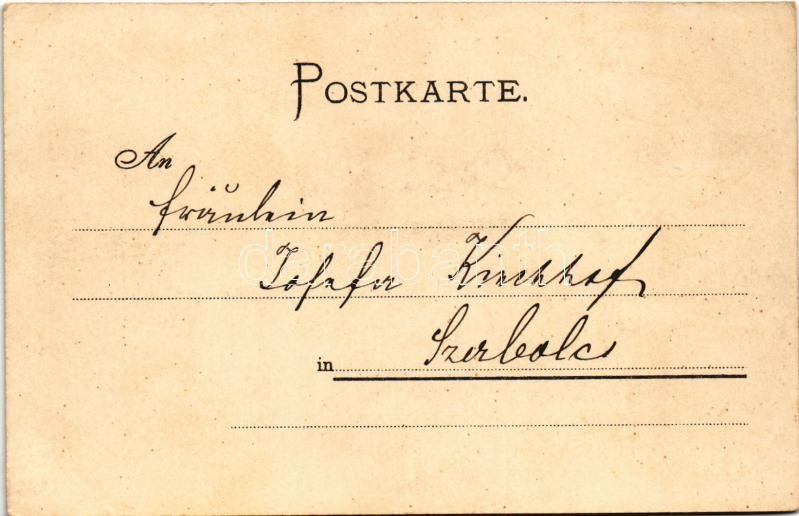 POSTKARTE.
An
Fräulein
Josefa Kirchhof
in Szerbolcs
darabanth